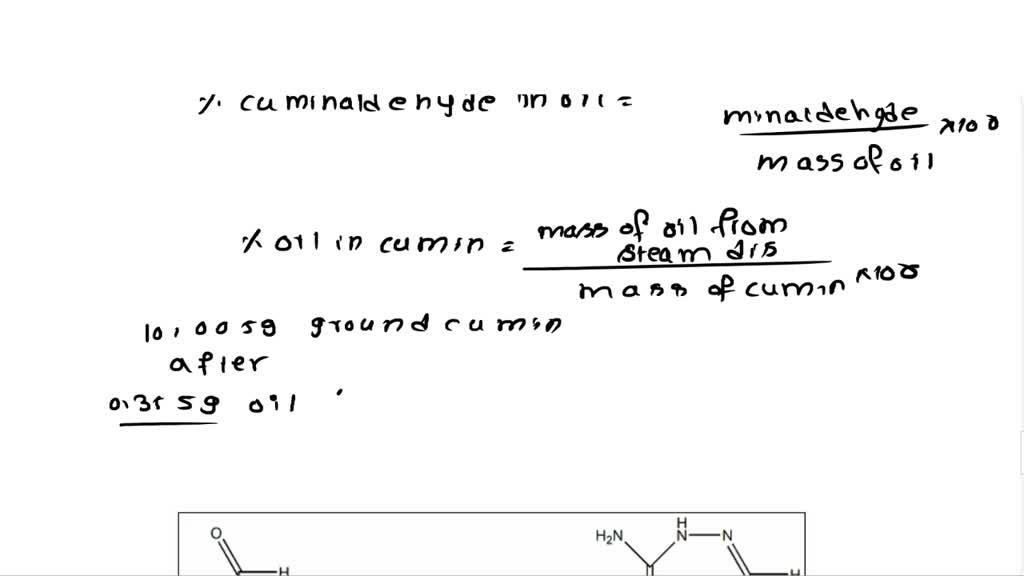 % cuminaldehyde in oil =
minaldehyde
x100
mass of oil
% oil in cumin =
mass of oil from
steam dis
mass of cumin x100
10,005g ground cumin
after
0.355g oil
O
H
H2N
H
N
N
H